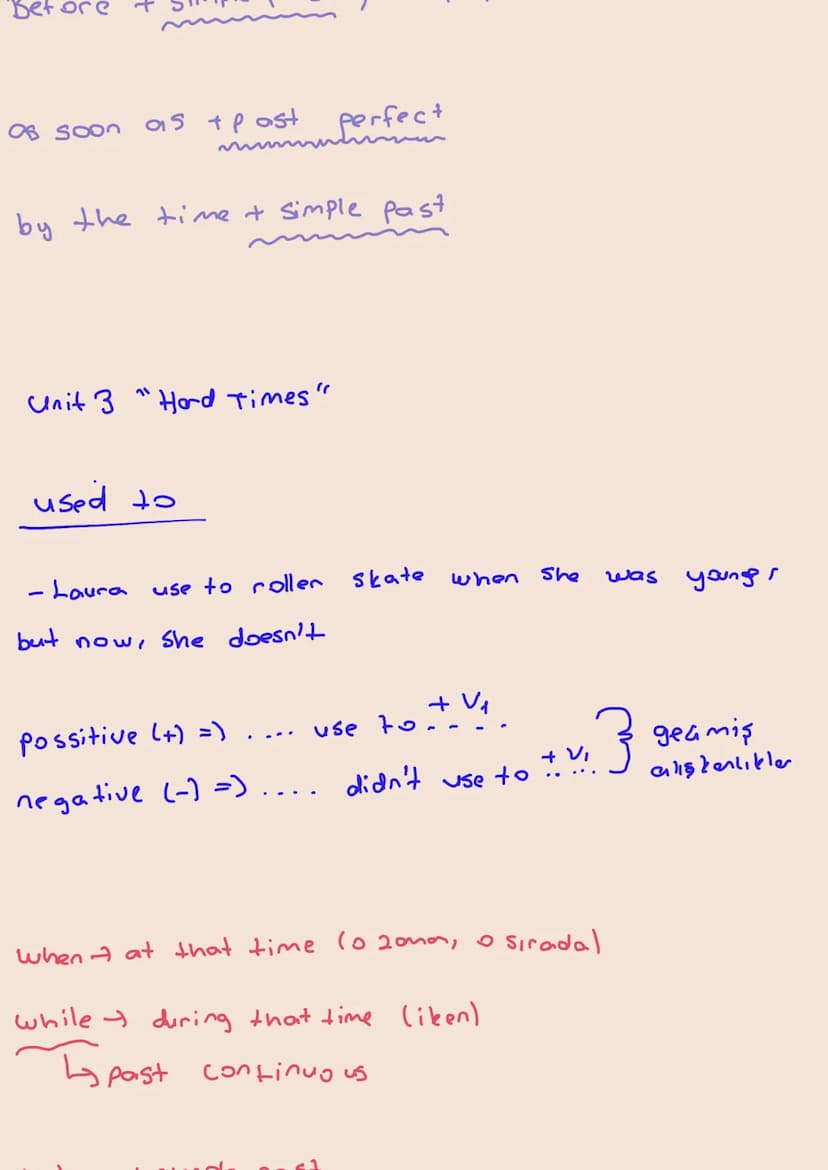 Before +
as soon as + past perfect
by the time + simple past
Unit 3 "Hard Times"
used to
- Laura use to roller skate when she was younger
but now, she doesn't
possitive (+) => .... use to + V1 ....
negative (-) => .... didn't use to + V1 ..... } geçmiş alışkanlıklar
when → at that time (o zaman, o sırada)
while → during that time (iken)
↳ past continuous